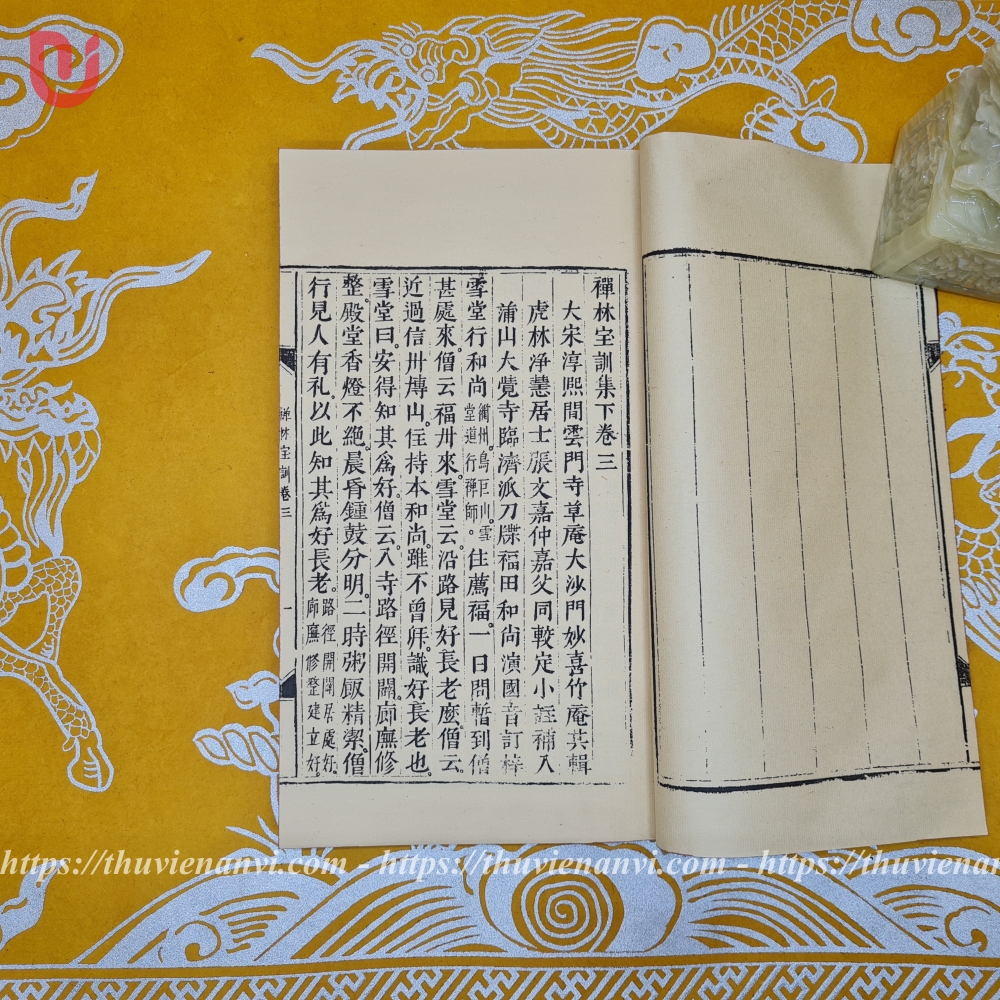 禪林宝訓集下卷三
大宋淳熙間雲門寺草庵大沙門妙喜竹庵共輯
虎林净慧居士張文嘉仲嘉父同較定小註補入
蒲山大覺寺臨濟派刀牒福田和尚演國音訂梓
雪堂行和尚衢州烏巨山雪堂道行禅師。住薦福。一日問暫到僧
甚處來。僧云福州來。雪堂云沿路見好長老麽。僧云。
近過信州博山。住持本和尚。雖不曾拜識。好長老也。
雪堂曰。安得知其為好。僧云。入寺路徑開闢。廊廡修
整。殿堂香燈不絶。晨昏鍾鼓分明。二時粥飯精潔。僧
行見人有礼。以此知其為好長老。路徑開闢居處好。廊廡修整建立好。
禅林宝訓卷三
一
https://thuvienanvi.com - https://thuvienanvi.com - https://thuvienanvi